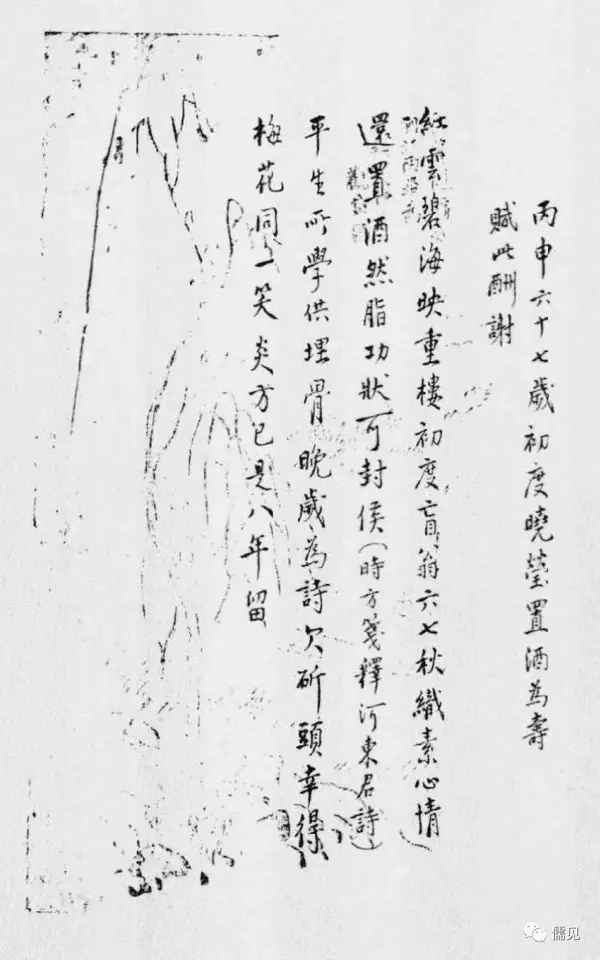 丙申六十七歲初度曉瑩置酒為壽
賦此酬謝
紅雲碧海映重樓初度盲翁六七秋織素心情
還置酒然脂功狀可封侯(時方箋釋河東君詩)
平生所學供埋骨晚歲為詩欠斫頭幸得
梅花同一笑炎方已是八年留
儒见